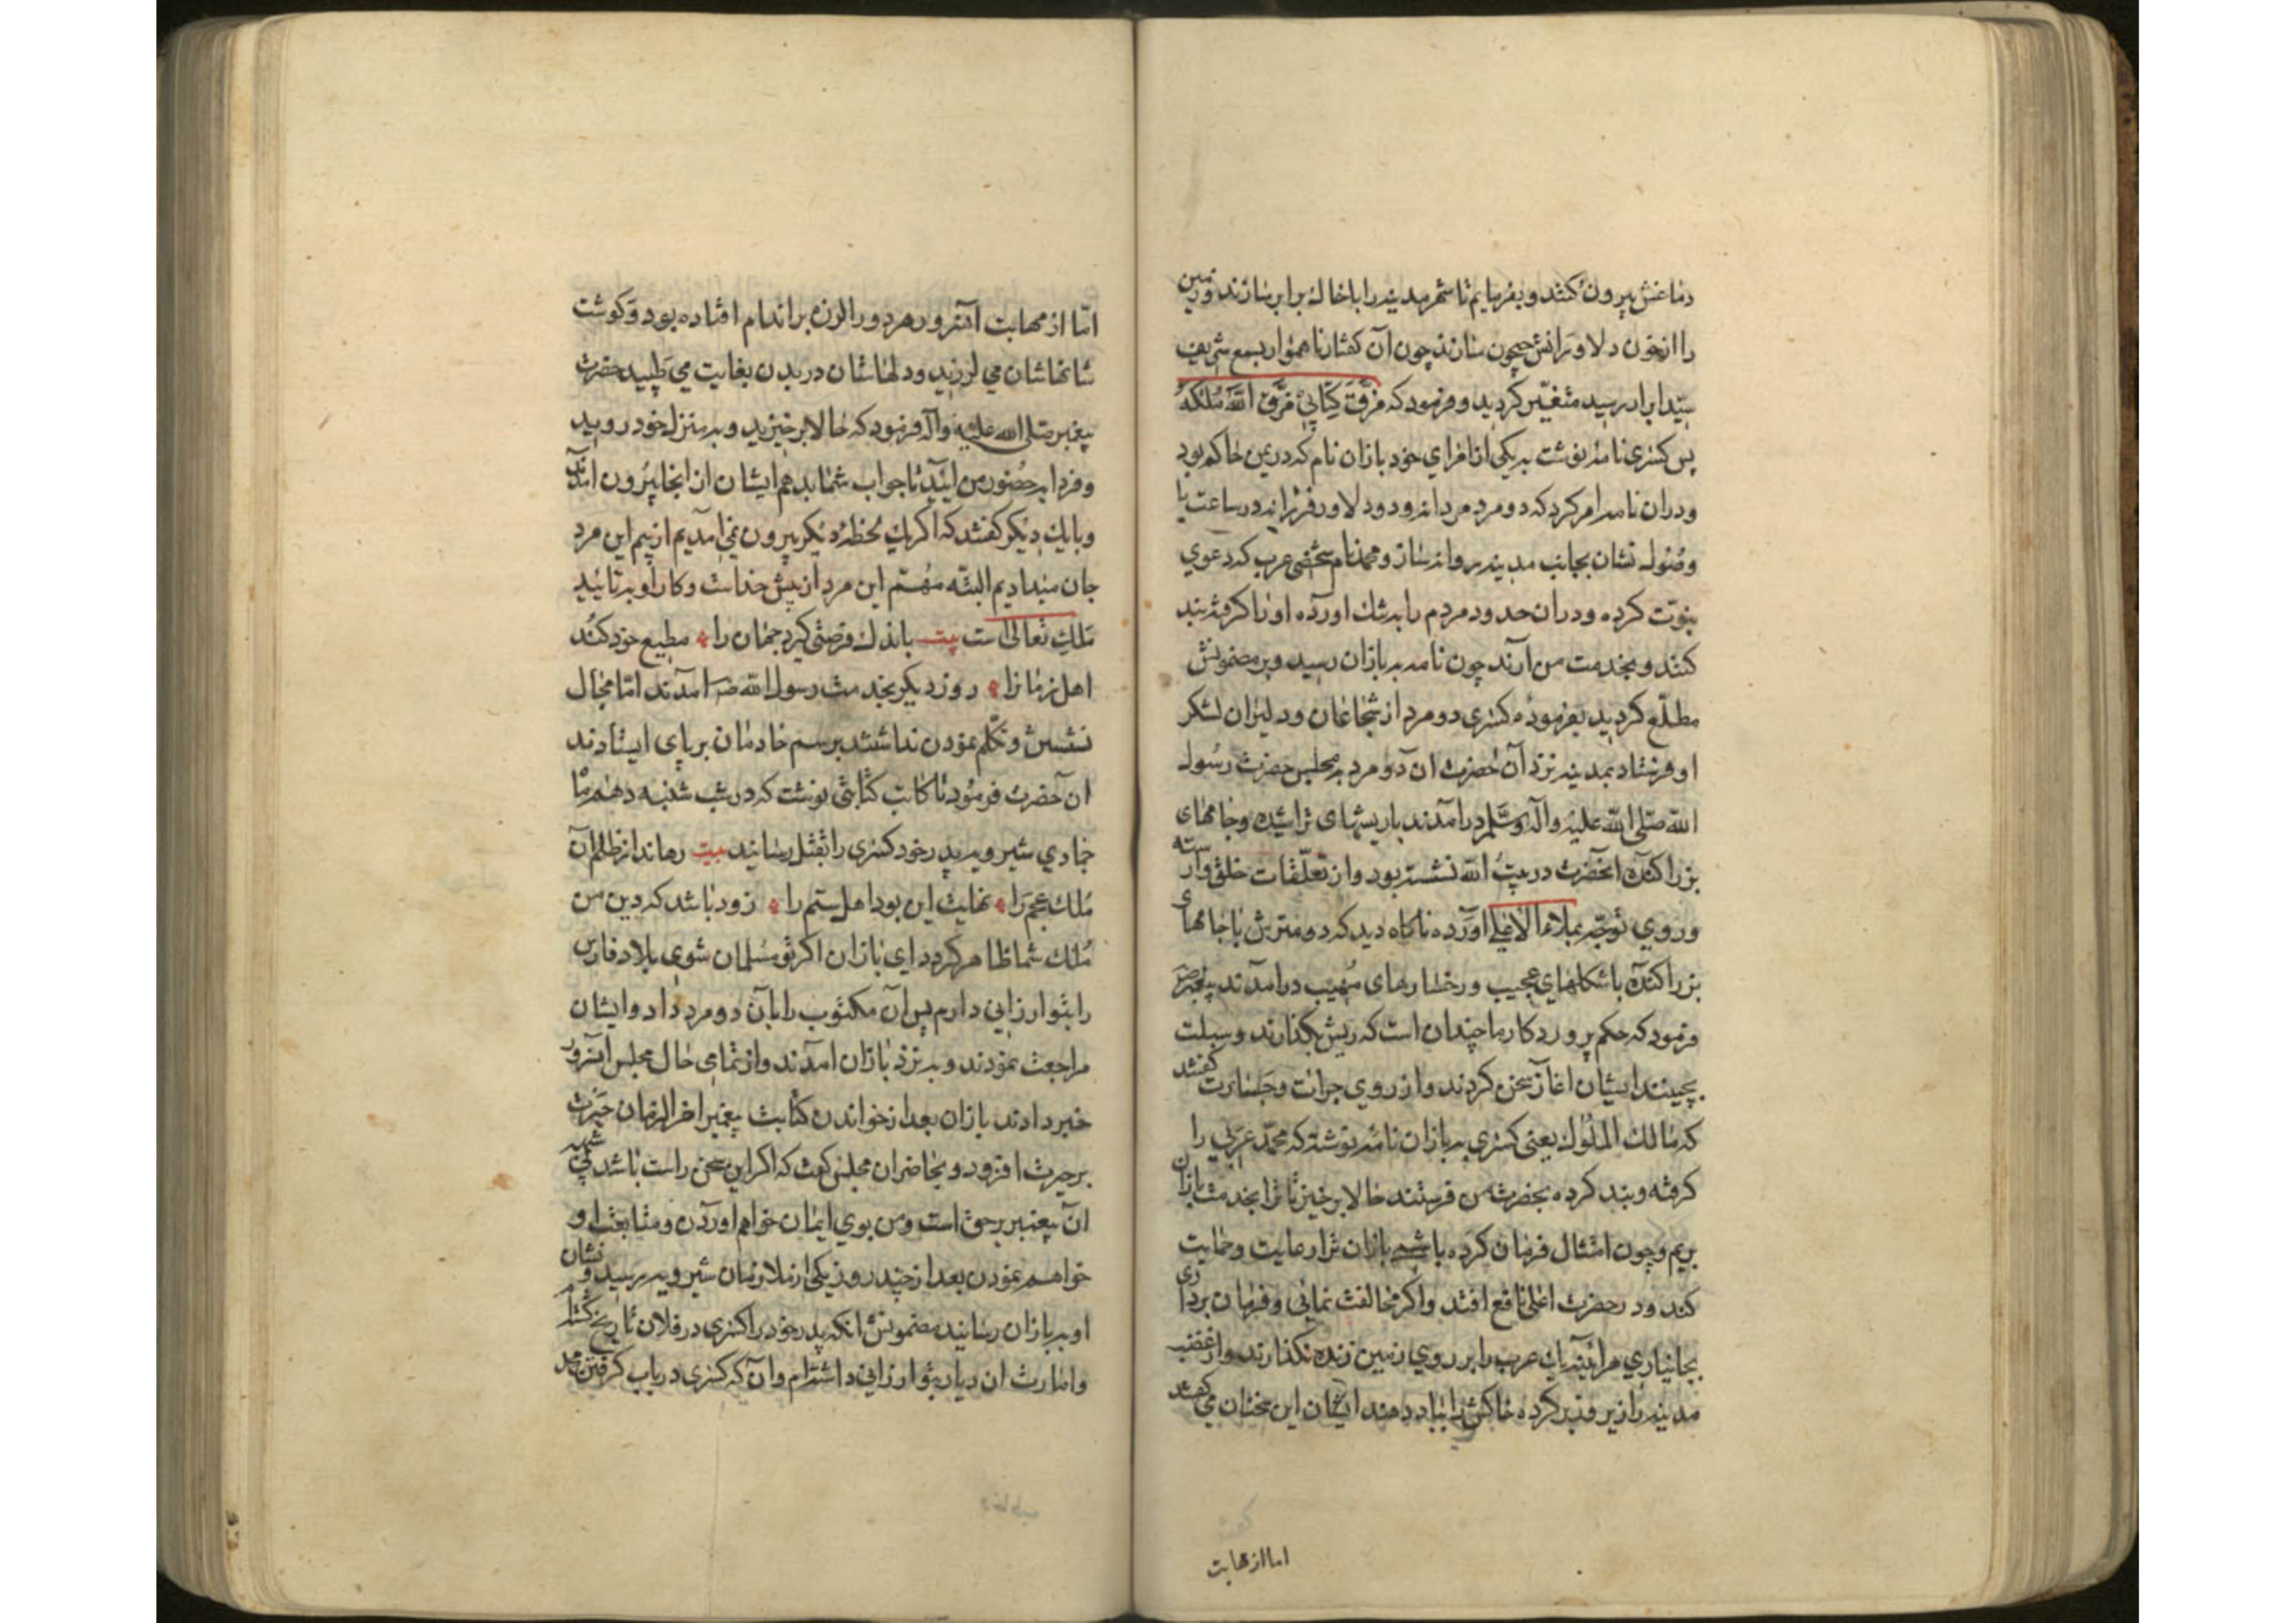 دماغش بیرون کنند و بفرمایم تا شهر مدینه را با خاک برابر سازند و زمین
را از خون دلاورانش جیحون سازند چون آن کفتار ناهموار بسمع شریف
سید ابرار رسید متغیّر کردید و فرمود که مزّق کتابی مزّق الله ملکه
پس کسری نامه نوشت بیکی از امرای خود بازان نام که در یمن حاکم بود
و در ان نامه امر کرد که دو مرد مردانه و دو دلاور فرزانه در ساعت با
وصول نشان بجانب مدینه روانه ساز و محمد نام شخصی عرب که دعوی
نبوّت کرده و در ان حدود مردم را به شک اورده او را کرفته بند
کنند و بخدمت من آرند چون نامه به بازان رسید و بر مضمونش
مطلّع کردید بفرموده کسری دو مرد از شجاعان و دلیران لشکر
او فرستاد بمدینه نزد آن حضرت ان دو مرد به مجلس حضرت رسول
الله صلی الله علیه وآله وسلم درامدند با ریشهای تراشیده و جامهای
بزر اکنده انحضرت در بیت الله نشسته بود و از تعلّقات خلق وارسته
و روی توجّه بملاء الاعلی اورده ناکاه دید که دو متربش با جامهای
بزر اکنده با شکلهای عجیب و رخسارهای مهیب درامدند پیغمبر ص
فرمود که حکم پروردکار ما چندان است که ریش بکذارند و سبلت
بچینند ایشان اغاز سخن کردند و از روی جرات و جسارت کفتند
که مالک الملوک یعنی کسری به بازان نامه نوشته که محمّد عربی را
کرفته و بند کرده بحضرت من فرستند حالا برخیز تا ترا بخدمت بازان
بریم و چون امتثال فرمان کرده باشی بازان ترا رعایت و حمایت
کند و در حضرت اعلی نافع افتد و اکر مخالفت نمائی و فرمان برداری
بجا نیاری هراینه یک عرب را بر روی زمین زنده نکذارند و از غضب
مدینه را زیر و زبر کرده خاکش را بباد دهند ایشان این سخنان می کفتند
اما از مهابت
امّا از مهابت آنسرور هر دو را لرزه بر اندام افتاده بود و کوشت
شانهاشان می لرزید و دلهاشان در بدن بغایت می طپید حضرت
پیغمبر صلی الله علیه وآله فرمود که حالا برخیزید و به منزل خود روید
و فردا به حضور من ایید تا جواب شما بدهم ایشان از انجا بیرون امدند
و با یک دیکر کفتند که اکر یک لحظه دیکر بیرون نمی امدیم از بیم این مرد
جان میدادیم البتّه مهمّ این مرد از پیش خداست و کار او به تایید
ملک تعالی است بیت باندک فرصتی کیرد جهان را مطیع خود کند
اهل زمان را روز دیکر بخدمت رسول الله ص امدند امّا مجال
نشستن و تکلّم نمودن نداشتند برسم خادمان بر پای ایستادند
ان حضرت فرمود تا کاتب کتابتی نوشت که در شب شنبه دهم ماه
جمادی شیرویه پدر خود کسری را بقتل رسانید بیت رهاند از ظلم آن
ملک عجم را نهایت این بود اهل ستم را زود باشد که دین من
ملک شما ظاهر کردد ای بازان اکر تو مسلمان شوی بلاد فارس
را بتو ارزانی دارم پس آن مکتوب را بآن دو مرد داد و ایشان
مراجعت نمودند و به نزد بازان امدند و از تمامی حال مجلس انسرور
خبر دادند بازان بعد از خواندن کتابت پیغمبر اخر الزمان حیرت
بر حیرت افزود و بحاضران مجلس کفت که اکر این سخن راست باشد بی شبهه
ان پیغمبر بر حق است و من بوی ایمان خواهم اوردن و متابعت او
خواهم نمودن بعد از چند روز یکی از ملازمان شیرویه رسید و نشان
او به بازان رسانید مضمونش انکه پدر خود را کسری در فلان تاریخ کشتم
و امارت ان دیار بتو ارزانی داشتم و آن که کسری در باب کرفتن محمد